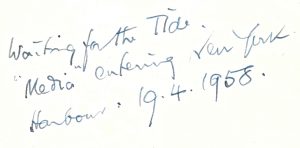 Waiting for the Tide.
"Media" entering New York
Harbour. 19.4.1958.